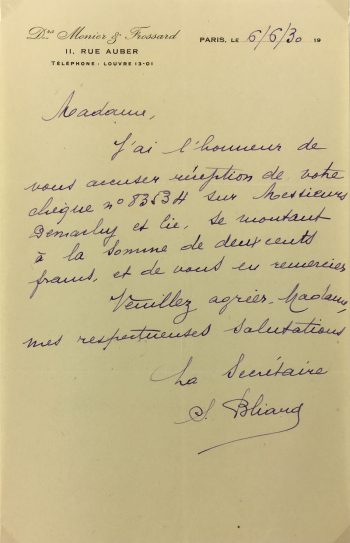 Drs Monier & Frossard
11, RUE AUBER
TÉLÉPHONE : LOUVRE 13-01
PARIS, LE 6/6/30 19
Madame,
J'ai l'honneur de
vous accuser réception de votre
chèque no 83534 sur Messieurs
Demachy et Cie, se montant
à la somme de deux cents
francs, et de vous en remercier
Veuillez agréer, Madame,
mes respectueuses salutations
La Secrétaire
S. Bliard